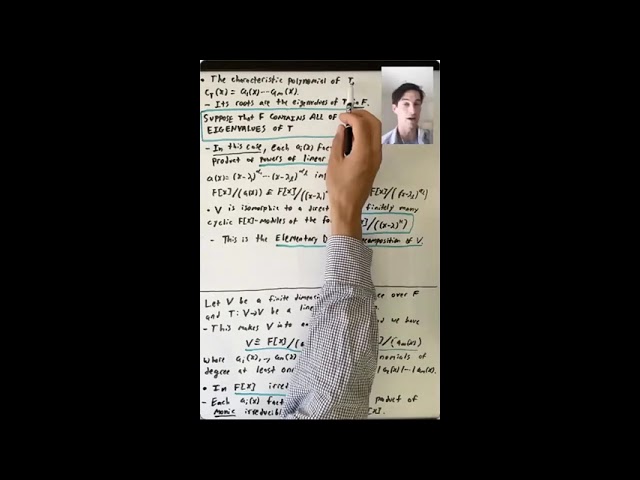 • The characteristic polynomial of T,
C_T(x) = a₁(x)⋯a_m(x).
– Its roots are the eigenvalues of T in F.
SUPPOSE THAT F CONTAINS ALL OF
EIGENVALUES OF T
– In this case, each aᵢ(x) fac
product of powers of linear
a(x) = (x-λ₁)^α₁ ⋯ (x-λ
F[x]/(a(x)) ≅ F[x]/((x-λ₁) F[x]/((x-λ
• V is isomorphic to a direct finitely many
cyclic F[x]-modules of the fo x]/((x-λ)
– This is the Elementary D composition of V.
Let V be a finite dimensi ce over F
and T: V→V be a line
– This makes V into a we have
V ≅ F[x]/(a ]/(a_m(x))
where a₁(x), ..., a_m(x) nomials of
degree at least one | a₂(x) | ⋯ | a_m(x).
• In F[x] irred
– Each aᵢ(x) fact product of
monic irreducibl [x].